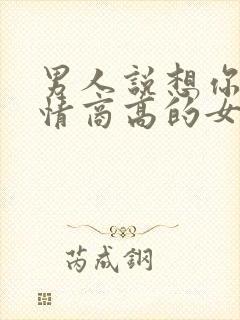 男人説想你
情商高的女
芮成鋼